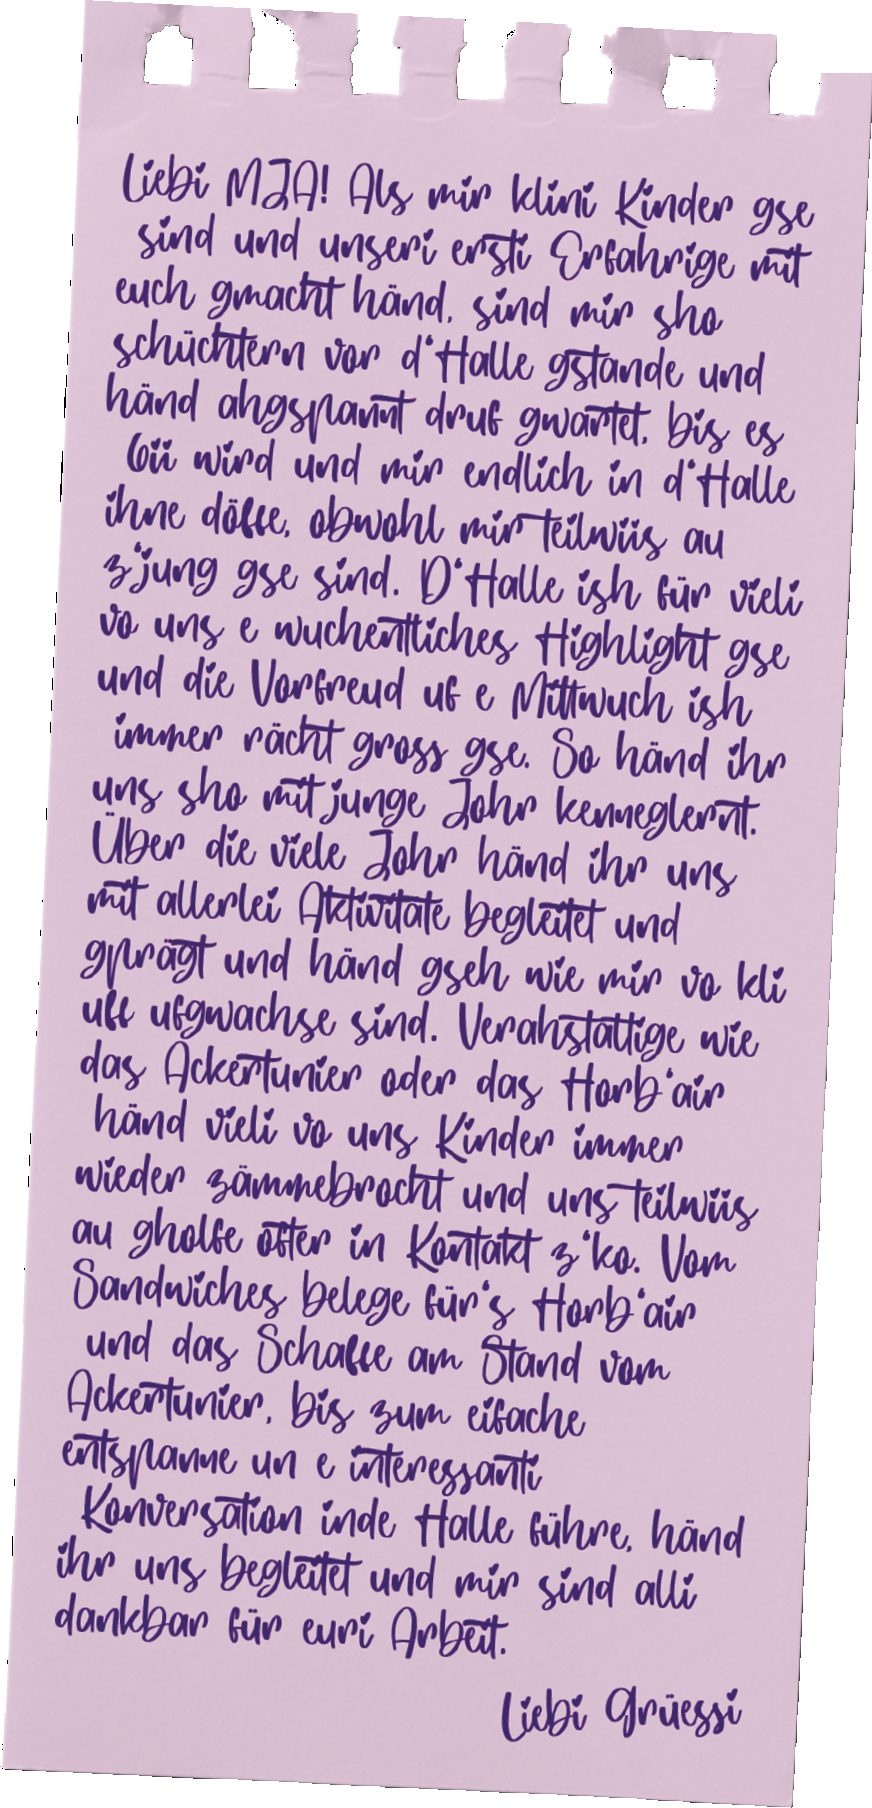 Liebi MJA! Als mir klini Kinder gse
sind und unseri ersti Erfahrige mit
euch gmacht händ, sind mir sho
schüchtern vor d'Halle gstande und
händ ahgspannt druf gwartet, bis es
6ii wird und mir endlich in d'Halle
ihne döffe, obwohl mir teilwiis au
z'jung gse sind. D'Halle ish für vieli
vo uns e wuchentliches Highlight gse
und die Vorfreud uf e Mittwuch ish
immer rächt gross gse. So händ ihr
uns sho mit junge Johr kenneglernt.
Über die viele Johr händ ihr uns
mit allerlei Aktivitäte begleitet und
gprägt und händ gseh wie mir vo kli
uff ufgwachse sind. Verahstaltige wie
das Ackertunier oder das Horb'air
händ vieli vo uns Kinder immer
wieder zämmebrocht und uns teilwiis
au gholfe öfter in Kontakt z'ko. Vom
Sandwiches belege für's Horb'air
und das Schaffe am Stand vom
Ackertunier, bis zum eifache
entspanne un e interessanti
Konversation inde Halle führe, händ
ihr uns begleitet und mir sind alli
dankbar für euri Arbeit.
Liebi Grüessi